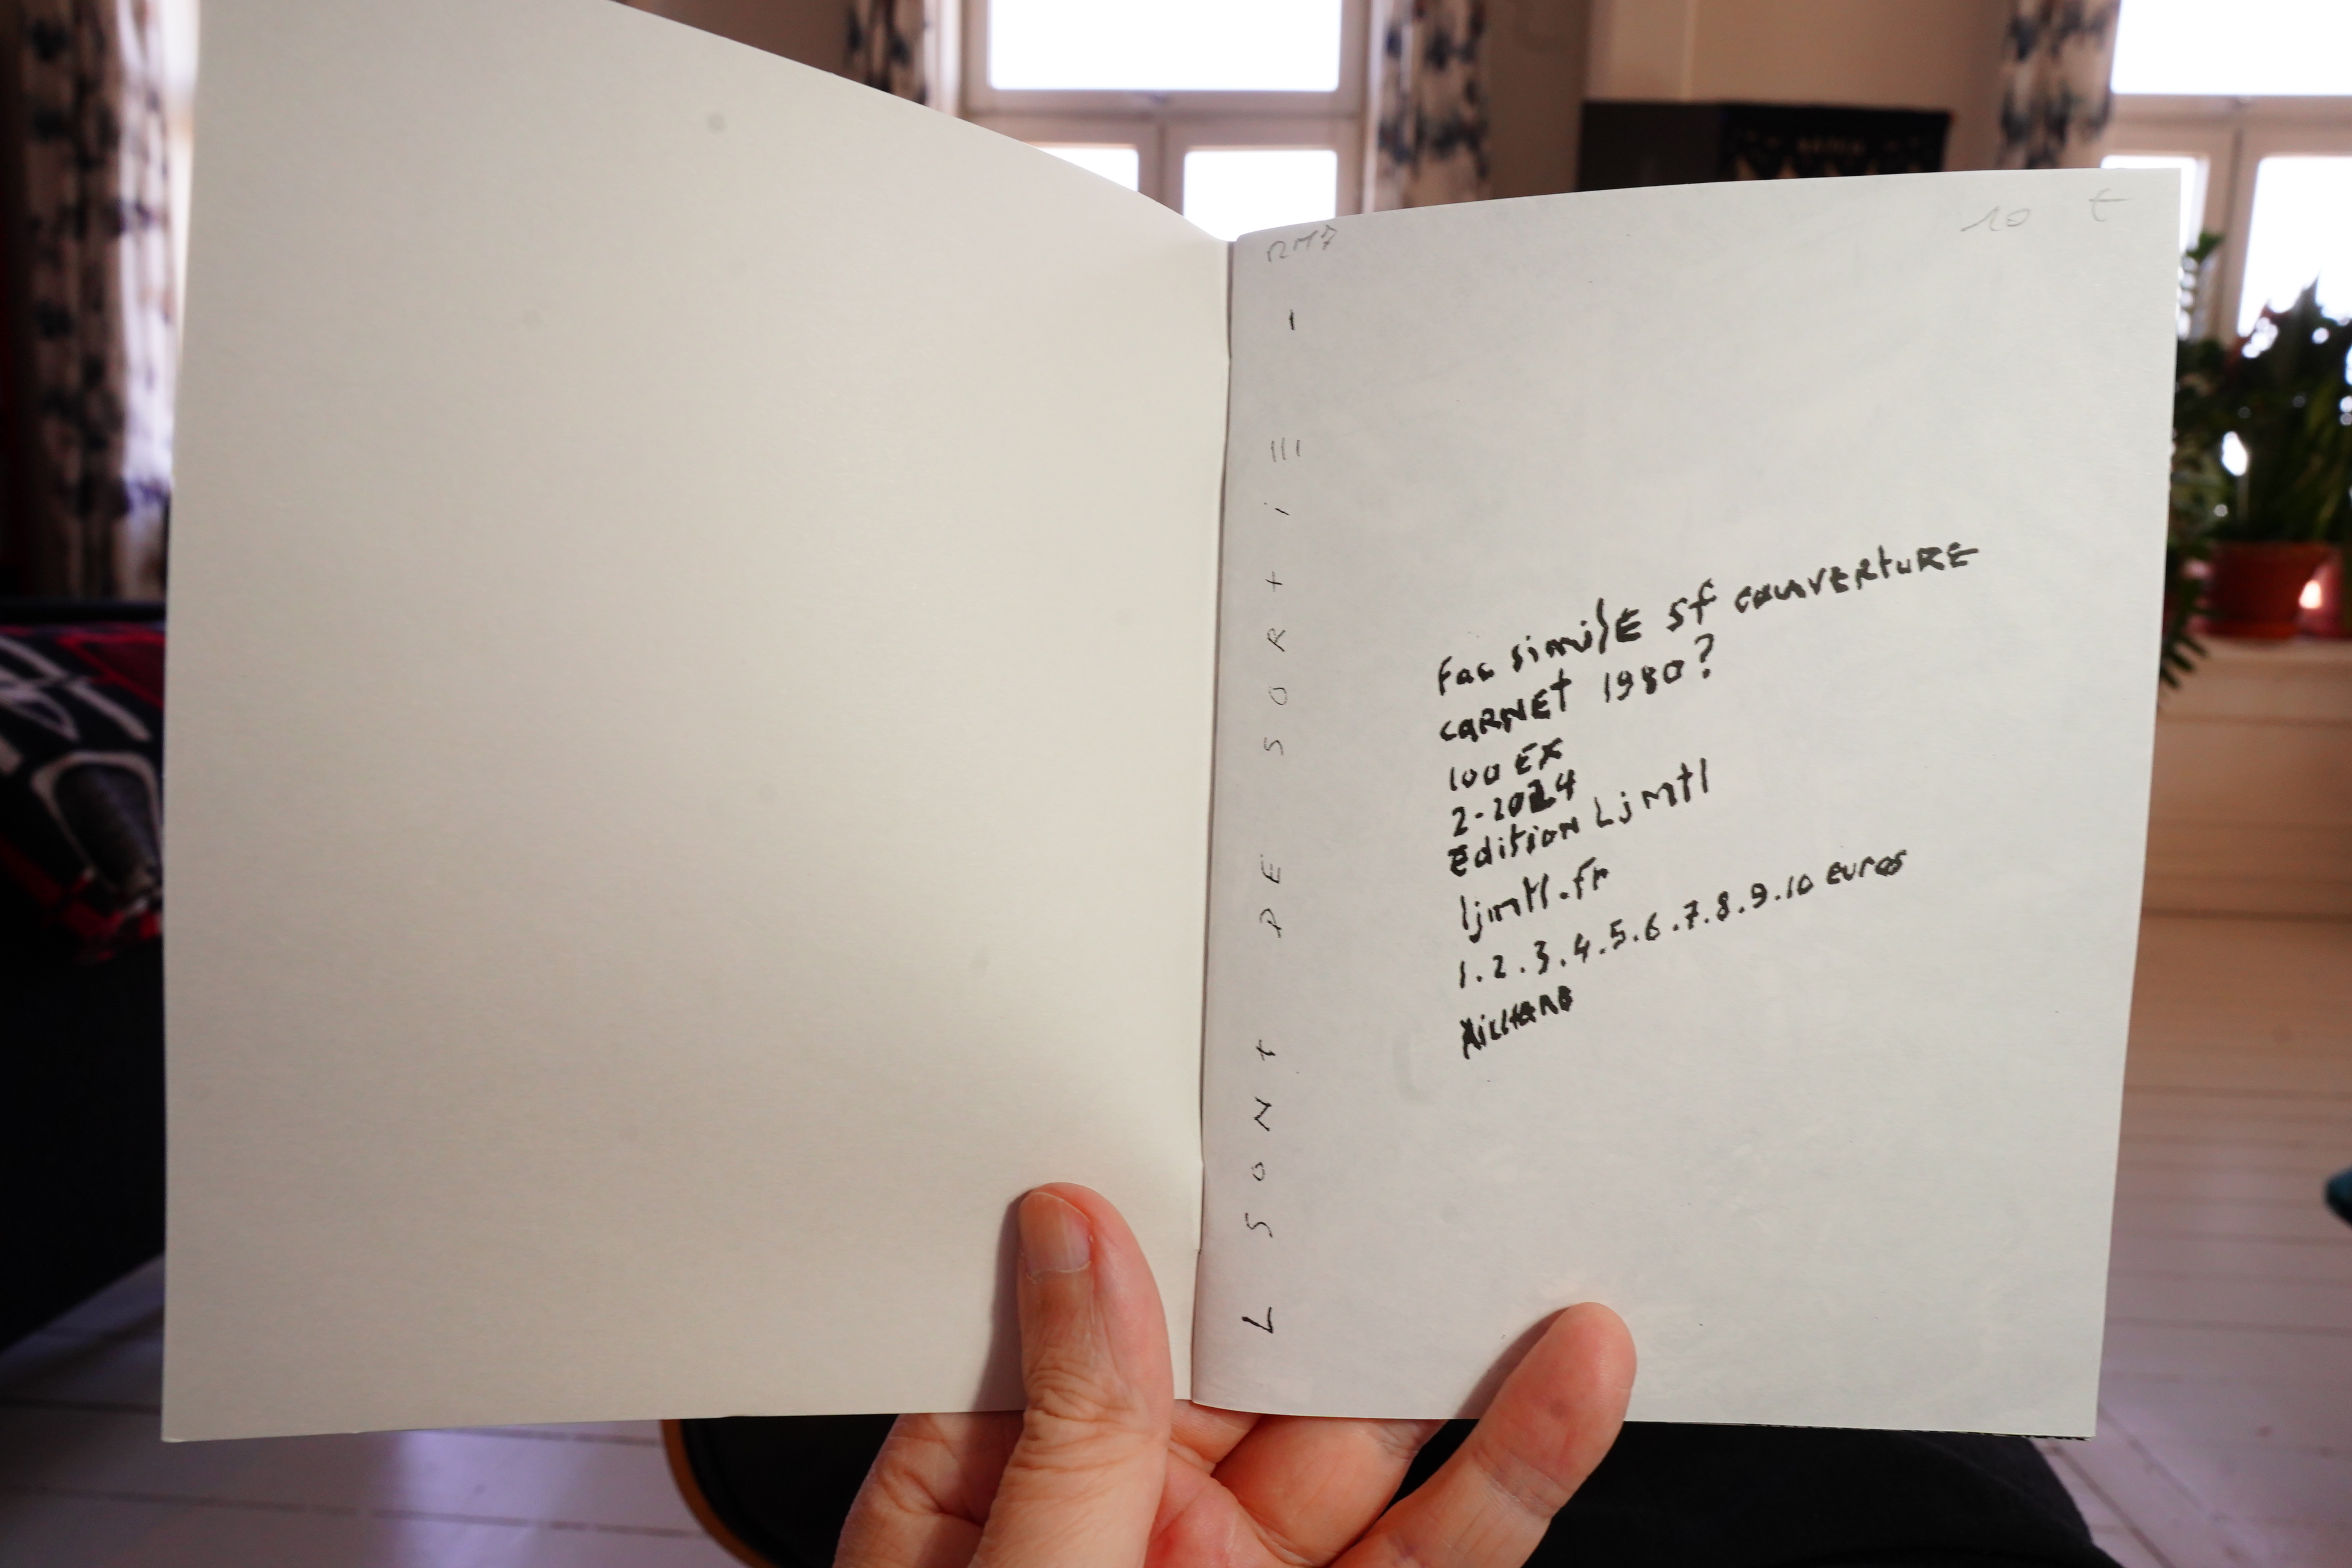 10 €
L SONt DE SORtiE -
Fac similE sf couvERtuRE
CARNEt 1980?
100 EX
2-2024
Edition Ljmtl
ljmtl.fr
1.2.3.4.5.6.7.8.9.10 euros